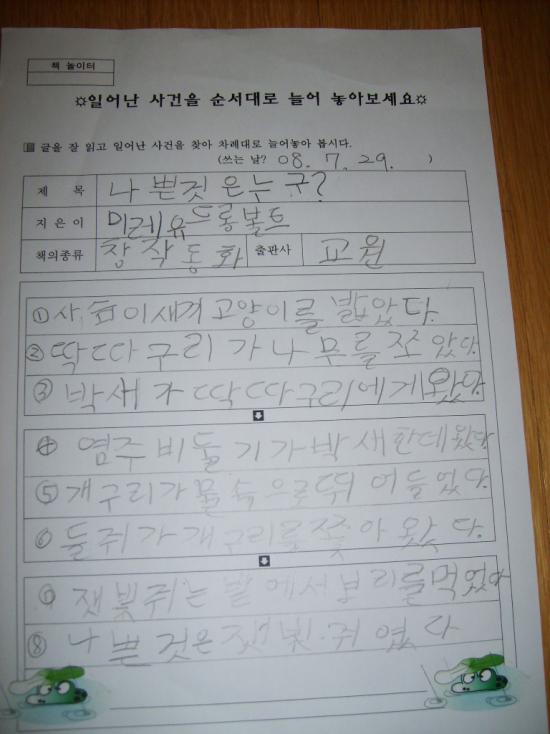 책 놀이터
☼일어난 사건을 순서대로 늘어 놓아보세요☼
글을 잘 읽고 일어난 사건을 찾아 차례대로 늘어놓아 봅시다.
(쓰는 날? 08. 7. 29. )
제 목 나쁜짓은누구?
지은이 미레유드롱볼트
책의종류 창작동화 출판사 교원
①사슴이새끼고양이를 밟았다.
②딱따구리가나무를쪼았다.
③박새가딱따구리에게왔다.
④염주비둘기가박새한테왔다
⑤개구리가물속으로뛰어들었다.
⑥들쥐가개구리를쫓아왔다.
⑦잿빛쥐는밭에서보리를먹었다
⑧나쁜것은잿빛쥐였다